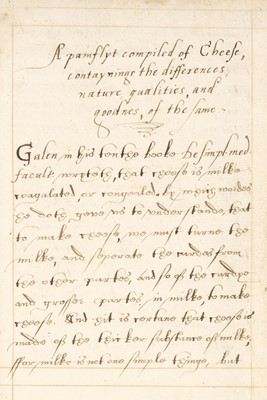 A pamflyt compiled of Cheese,
contayninge the differences,
nature, qualities, and
goodnes, of the same
Galen in his tenthe booke De simpl: med:
facult: wryteth, that cheese is milke
coagulated, or congealed, by which wordes
he doth geve us to understande, that
to make cheese, we must turne the
milke, and seperate the curdes from
the other partes, and so of the curdye
and grosser partes, in milke, to make
cheese. And yit is certane that cheese is
made of the thicker substance of milke,
ffor milke is not one simple thinge, but